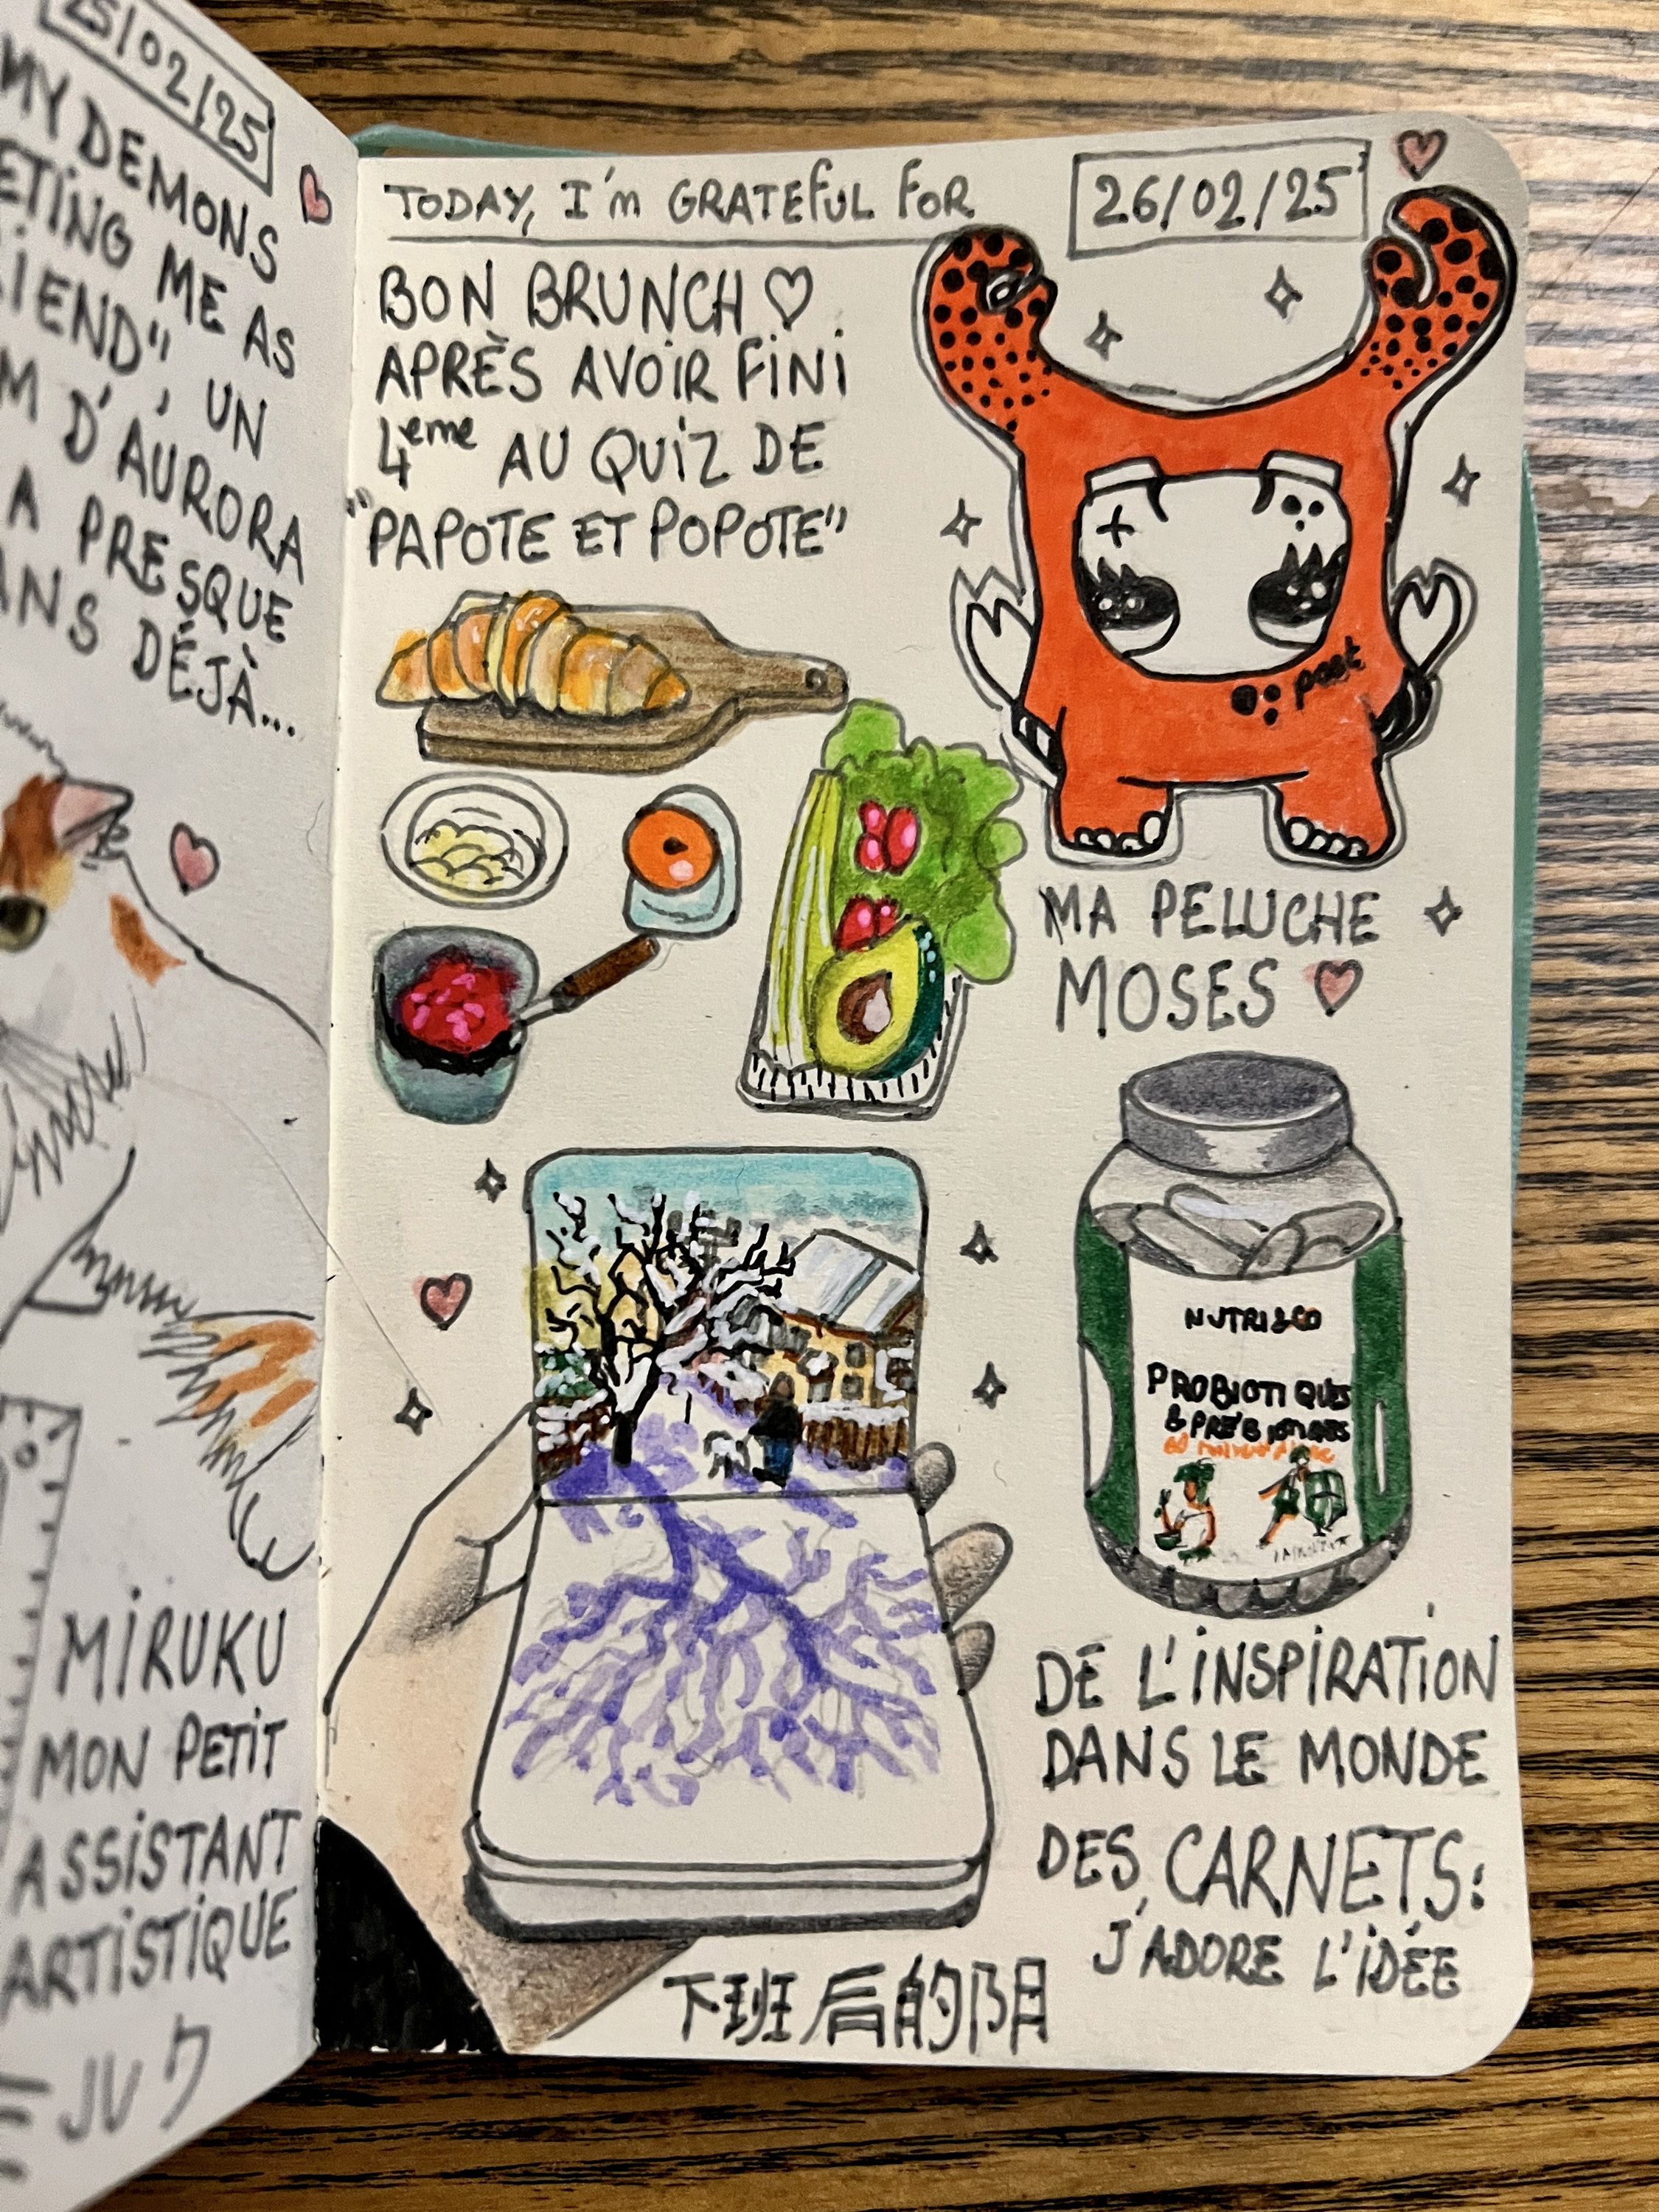 25/02/25
MY DEMONS
ME AS
UN
D'AURORA
A PRESQUE
DÉJÀ...
MIRUKU
MON PETIT
ASSISTANT
ARTISTIQUE
TODAY, I'm GRATEFUL FOR
26/02/25
BON BRUNCH ♡
APRÈS AVOIR FINI
4eme AU QUIZ DE
"PAPOTE ET POPOTE"
post
MA PELUCHE
MOSES
NUTRI&CO
PROBIOTIQUES
DE L'INSPIRATION
DANS LE MONDE
DES CARNETS:
J'ADORE L'IDÉE
下班后的阴